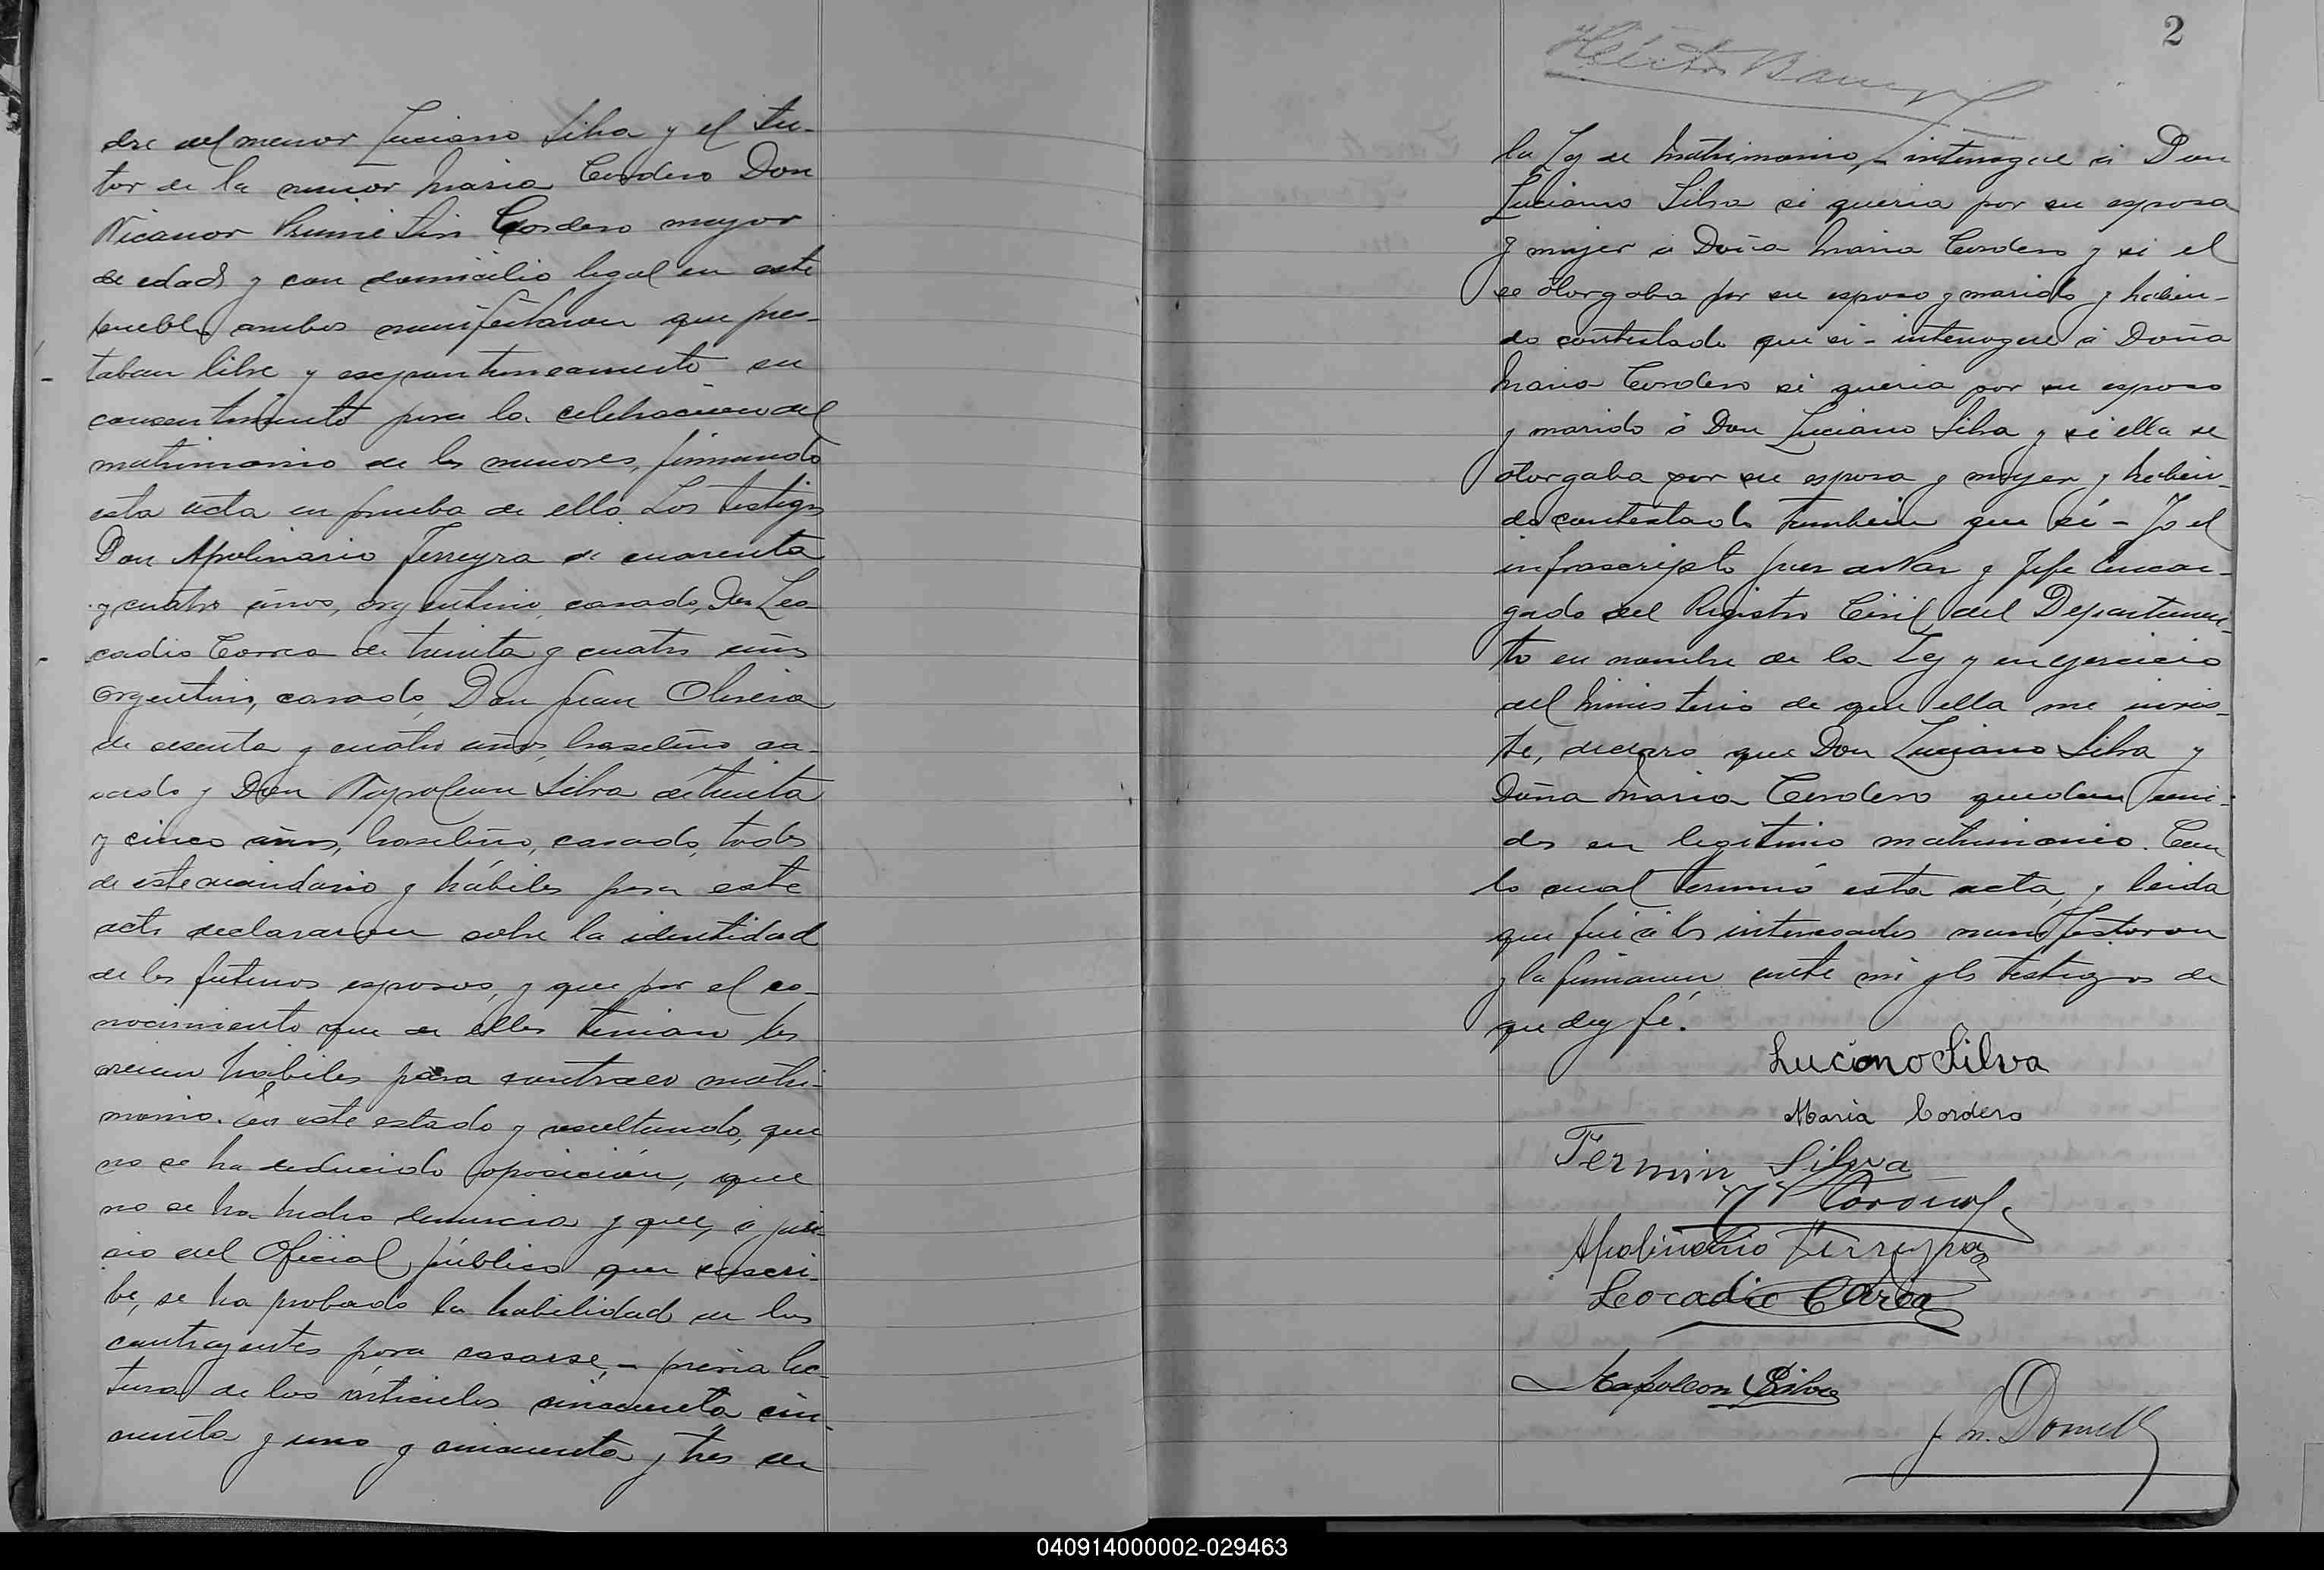 dre del menor Luciano Silva y el tu-
tor de la menor Maria Cordero Don
Nicanor Cordero mayor
de edad y con domicilio legal en este
pueblo ambos manifestaron que pres-
taban libre y espontaneamente su
consentimiento para la celebracion del
matrimonio de los menores, firmando
esta acta en prueba de ello. Los testigos
Don Apolinario Ferreyra de cuarenta
y cuatro años, argentino, casado, Don Leo-
cadio Correa de treinta y cuatro años
argentino, casado, Don Juan Oliveira
de sesenta y cuatro años, brasilero ca-
sado y Don Napoleon Silva de treinta
y cinco años, brasilero, casado, todos
de este vecindario y hábiles para este
acto declararon sobre la identidad
de los futuros esposos, y que por el co-
nocimiento que de ellos tenian los
creian hábiles para contraer matri-
monio. En este estado y resultando, que
no se ha deducido oposición, que
no se ha hecho denuncia y que, á jui-
cio del Oficial público que suscri-
be, se ha probado la habilidad de los
contrayentes para casarse, - previa lec-
tura de los articulos cincuenta cin-
cuenta y uno y cincuenta y tres de
2
la Ley de Matrimonio, - interrogué á Don
Luciano Silva si queria por su esposa
y mujer á Doña Maria Cordero y si el
se otorgaba por su esposo y marido y habien-
do contestado que si - interrogué á Doña
Maria Cordero si queria por su esposo
y marido á Don Luciano Silva y si ella se
otorgaba por su esposa y mujer y habien-
do contestado tambien que sí - Yo el
infrascripto Juez de Paz y Jefe Encar-
gado del Registro Civil del Departamen-
to en nombre de la Ley y en ejercicio
del Ministerio de que ella me invis-
te, declaro que Don Luciano Silva y
Doña Maria Cordero quedan uni-
dos en legitimo matrimonio. Con
lo cual terminó esta acta, y leida
que fué á los interesados manifestaron
y la firmaron ante mi y los testigos de
que doy fé.
Luciano Silva
Maria Cordero
Fermin Silva
Apolinario Ferreyra
Leocadio Correa
Napoleon Silva
040914000002-029463